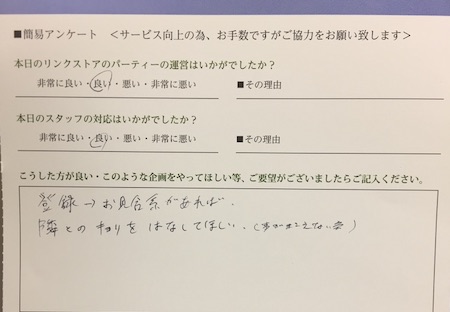 ■簡易アンケート ＜サービス向上の為、お手数ですがご協力をお願い致します＞
本日のリンクストアのパーティーの運営はいかがでしたか？
非常に良い・良い・悪い・非常に悪い ■その理由
本日のスタッフの対応はいかがでしたか？
非常に良い・良い・悪い・非常に悪い ■その理由
こうした方が良い・このような企画をやってほしい等、ご要望がございましたらご記入ください。
登録→お見合系があれば.
隣とのキョリをはなしてほしい.